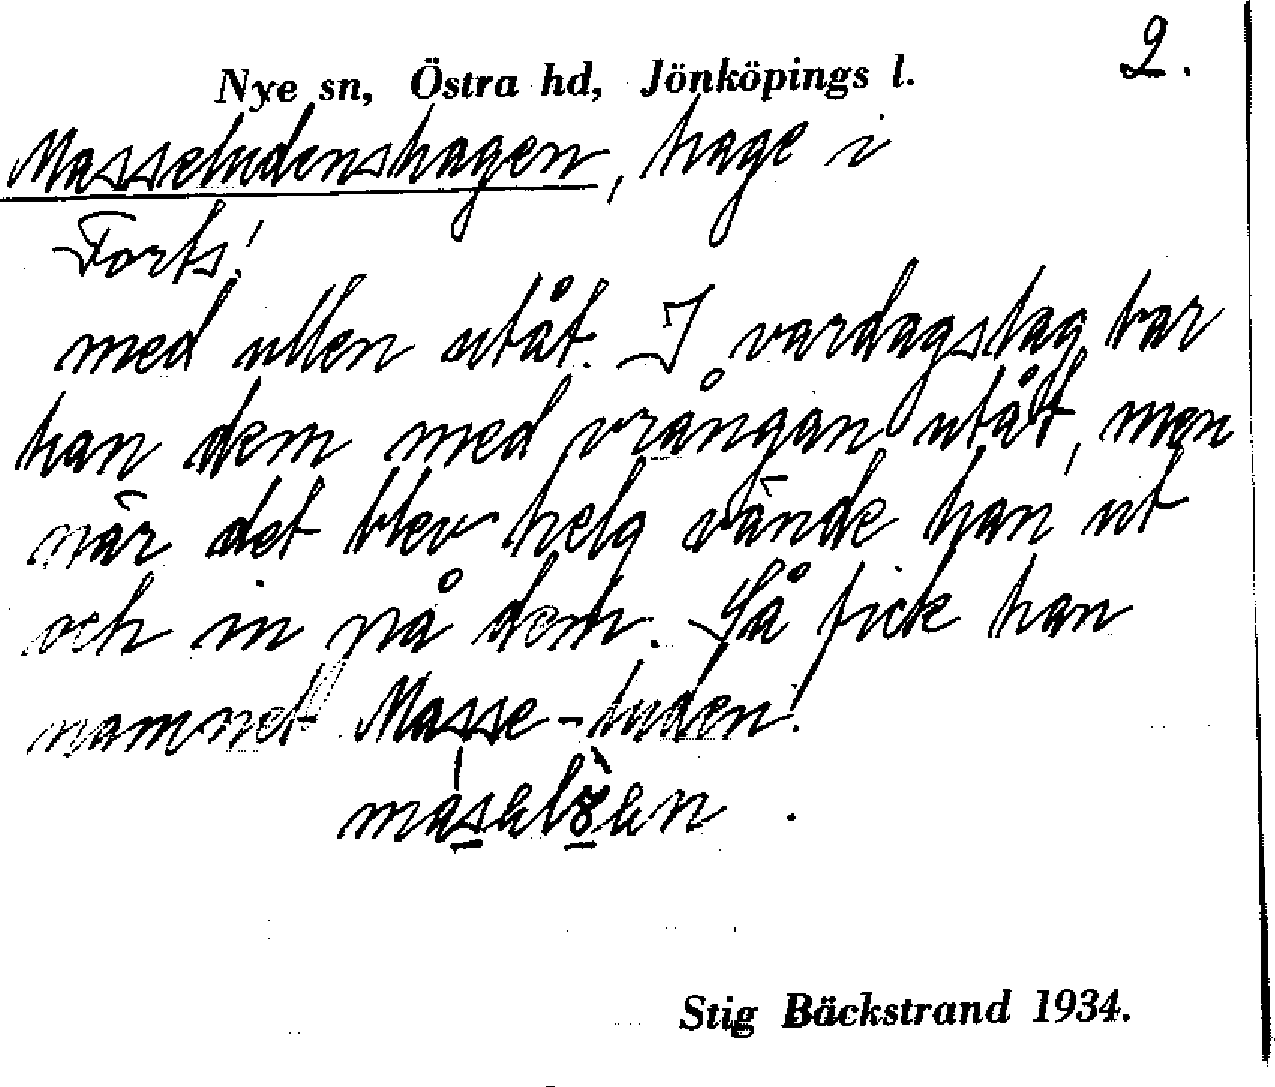 2.
Nye sn, Östra hd, Jönköpings l.
Masseludenshagen, hage i
Forts!
med ullen utåt. I vardagslag bar
han dem med vrångan utåt, men
när det blev helg vände han ut
och in på dem. Så fick han
namnet Masse-luden!
Stig Bäckstrand 1934.